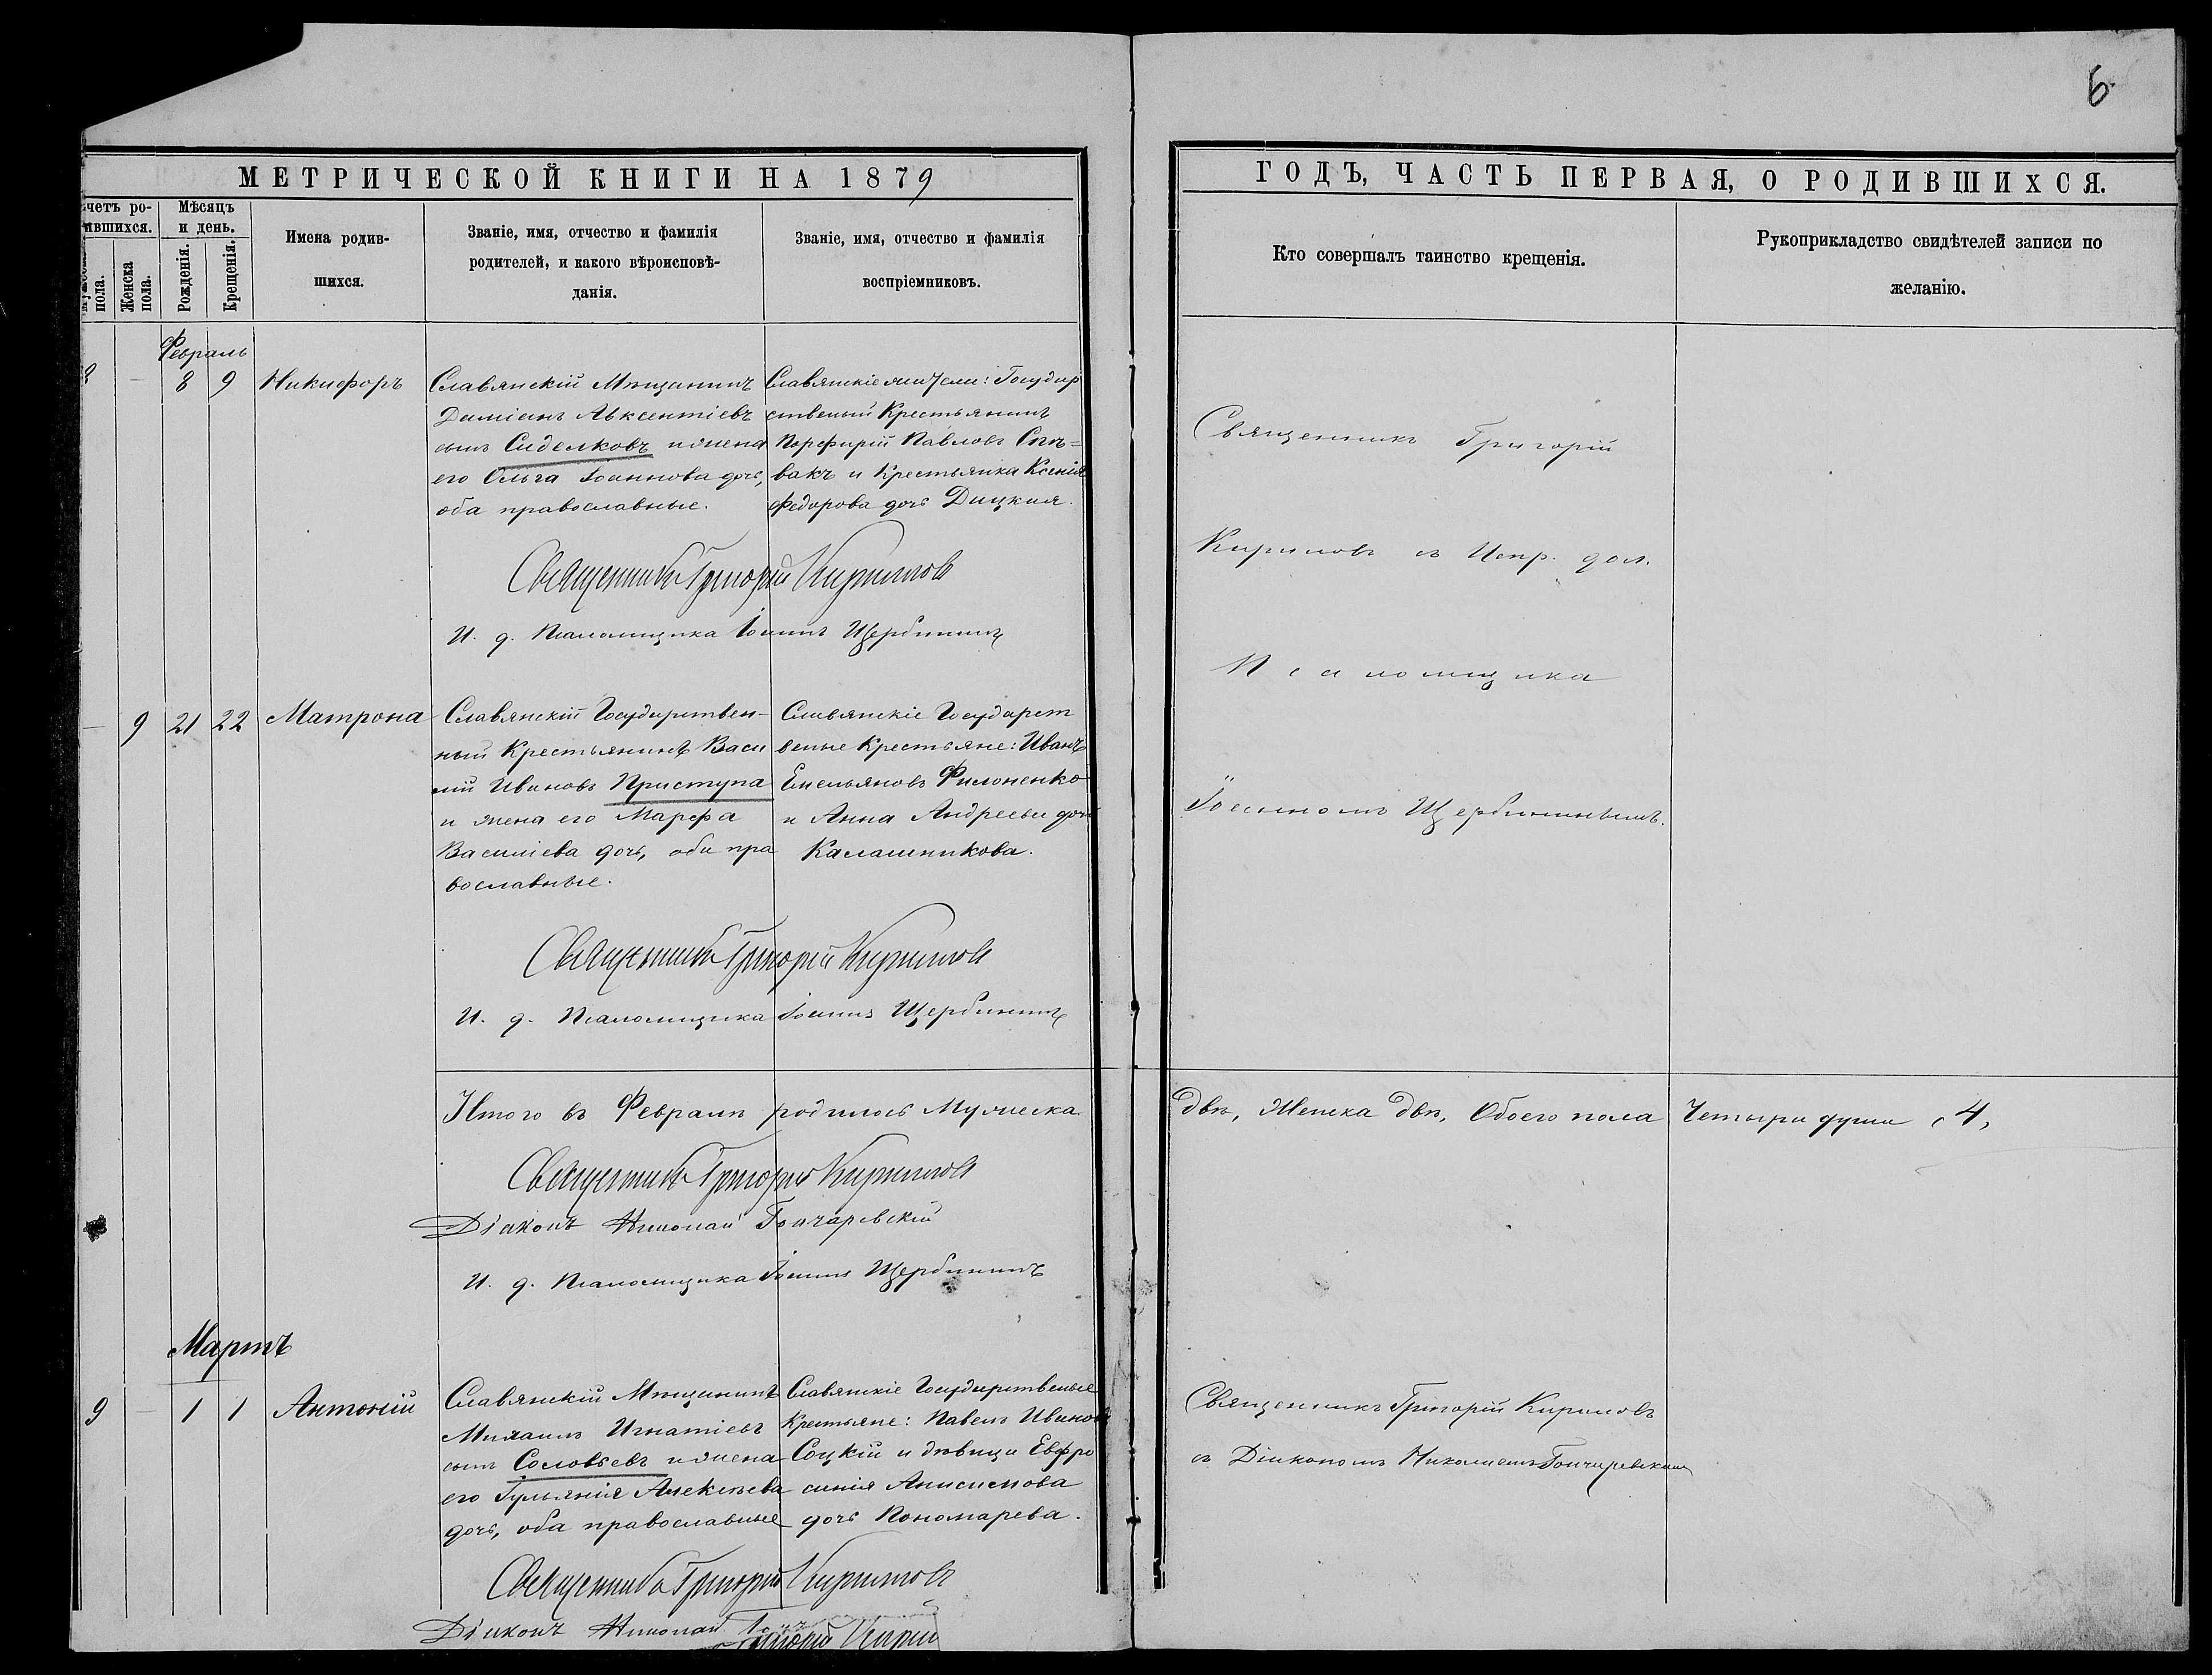 6
МЕТРИЧЕСКОЙ КНИГИ НА 1879
ГОДЪ, ЧАСТЬ ПЕРВАЯ, О РОДИВШИХСЯ.
четъ ро-
ившихся.
пола.
Женска
пола.
Мѣсяцъ
и день.
Рожденія.
Крещенія.
Имена родив-
шихся.
Званіе, имя, отчество и фамилія
родителей, и какого вѣроисповѣ-
данія.
Званіе, имя, отчество и фамилія
воспріемниковъ.
Кто совершалъ таинство крещенія.
Рукоприкладство свидѣтелей записи по
желанію.
Февраль
8 - 8 9 Никифоръ
Славянскій Мѣщанинъ
Даміанъ Авксентіевъ
сынъ Сиделковъ и жена
его Ольга Іоаннова дочь,
оба православные.
Славянскіе жители: Государ
ственый Крестьянинъ
Порфирій Павловъ Спѣ=
вакъ и Крестьянка Ксенія
Федорова дочь Дицкая.
Священникъ Григорій Кириловъ
И. д. Псаломщика Іоаннъ Щербининъ
Священникъ Григорій
Кириловъ съ Испр. дол.
Псаломщика
Іоанномъ Щербининымъ.
- 9 21 22 Матрона
Славянскій Государствен-
ный Крестьянинъ Васи
лій Ивановъ Приступа
и жена его Марѳа
Василіева дочь, оба пра
вославные.
Славянскіе Государст
веные Крестьяне: Иванъ
Емельяновъ Филоненко
и Анна Андреева дочь
Калашникова.
Священникъ Григорій Кириловъ
И. д. Псаломщика Іоаннъ Щербининъ
Итого въ Февралѣ родилось Мужеска
двѣ, Женска двѣ, Обоего пола Четыри души "4"
Священникъ Григорій Кириловъ
Діаконъ Николай Гончаревскій
И. д. Псаломщика Іоаннъ Щербининъ
Мартъ
9 - 1 1 Антоній
Славянскій Мѣщанинъ
Михаилъ Игнатіевъ
сынъ Соловьевъ и жена
его Іульянія Алексѣева
дочь, оба православные
Славянскіе Государственые
Крестьяне: Павелъ Иванов
Соцкій и дѣвица Евфро
синія Анисимова
дочь Пономарева.
Священникъ Григорій Кириловъ
съ Діакономъ Николаемъ Гончаревскимъ
Священникъ Григорій Кириловъ
Діаконъ Николай Гонч
Григорій Кирил